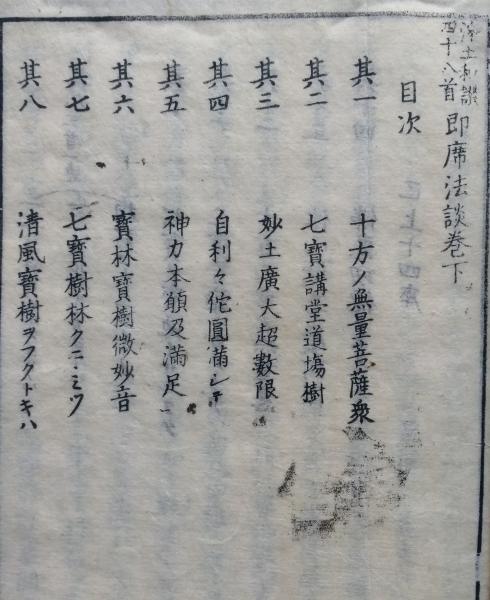 浄土和讃
四十八首 即席法談巻下
目次
其一 十方ノ無量菩薩衆
其二 七寳講堂道塲樹
其三 妙土廣大超數限
其四 自利々佗圓滿シテ
其五 神力本願及滿足
其六 寳林寳樹微妙音
其七 七寳樹林クニヽミツ
其八 清風寳樹ヲフクトキハ